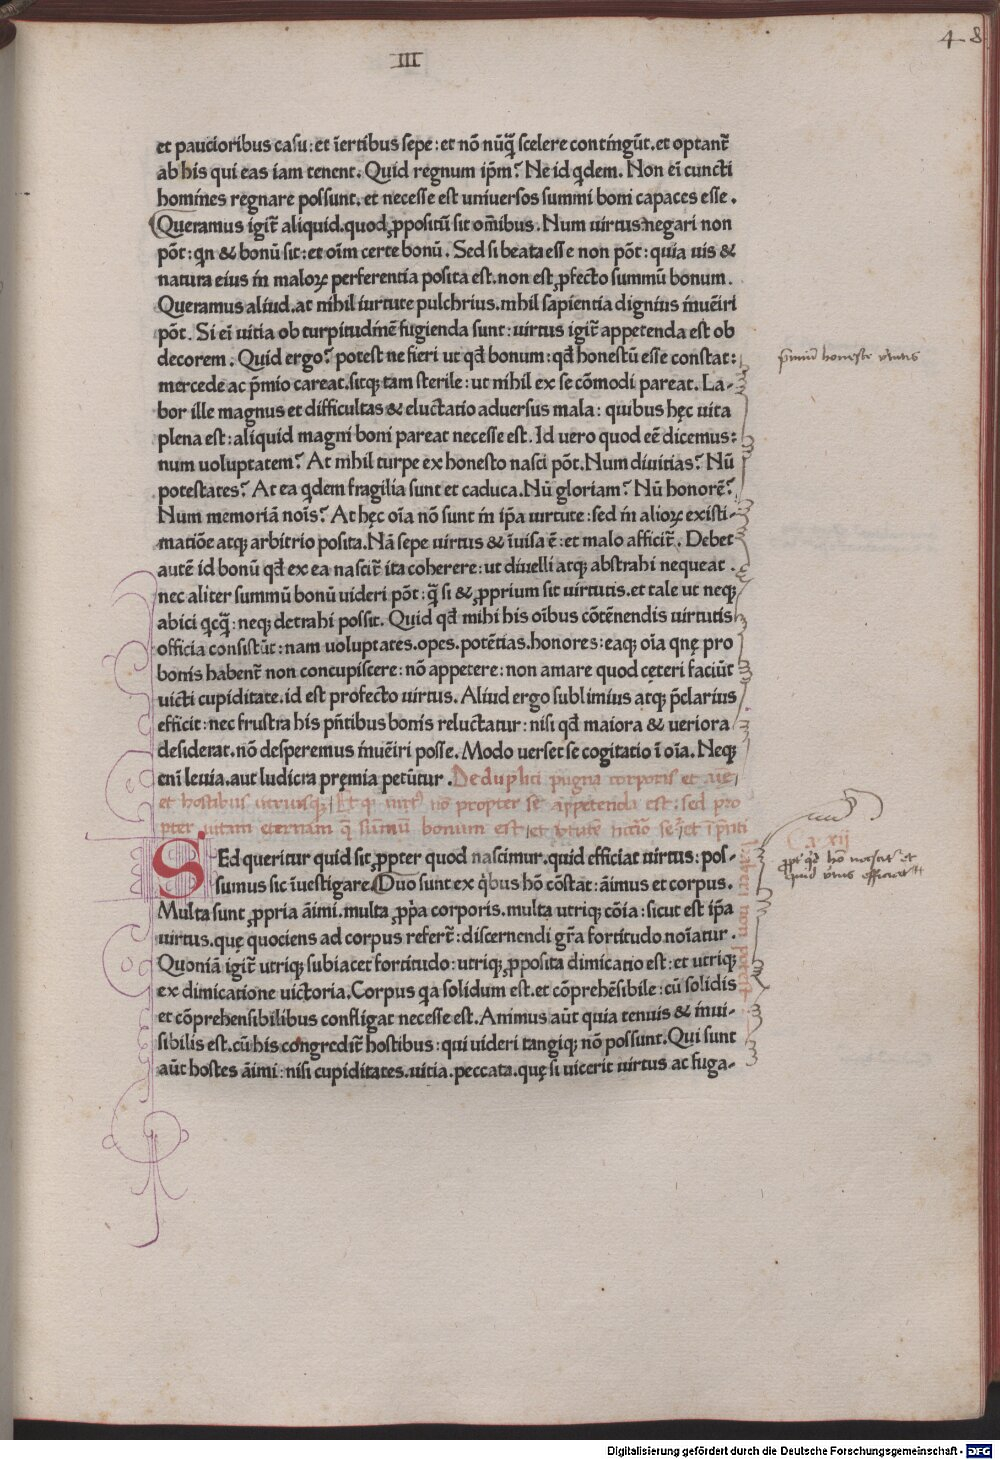 III
48
et paucioribus casu: et īertibus sepe: et nō nūq̄ scelere contingūt. et optant᷑
ab his qui eas iam tenent. Quid regnum ip̄m? Ne id qdem. Non ei cuncti
homines regnare possunt. et necesse est universos summi boni capaces esse.
Queramus igit᷑ aliquid. quod ꝓpositū sit om̄ibus. Num uirtus negari non
pōt: qn & bonū sit: et oīm certe bonū. Sed si beata esse non pōt: quia uis &
natura eius in maloꝝ perferentia posita est. non est ꝓfecto summū bonum.
Queramus aliud. at nihil iurtute pulchrius. nihil sapientia dignius inuēiri
pōt. Si ei uitia ob turpitudinē fugienda sunt: uirtus igit᷑ appetenda est ob
decorem. Quid ergo? potest ne fieri ut qd̄ bonum: qd̄ honestū esse constat:
mercede ac p̄mio careat. sitq; tam sterile: ut nihil ex se cōmodi pareat. La-
bor ille magnus et difficultas & eluctatio aduersus mala: quibus hęc uita
plena est: aliquid magni boni pareat necesse est. Id uero quod eē dicemus:
num uoluptatem? At nihil turpe ex honesto nasci pōt. Num diuitias? Nū
potestates? At ea qdem fragilia sunt et caduca. Nū gloriam? Nū honorē?
Num memoriā noīs? At hęc oīa nō sunt in ip̄a uirtute: sed in alioꝝ existi-
matiōe atq; arbitrio posita. Nā sepe uirtus & īuisa ē: et malo afficit᷑. Debet
autē id bonū qd̄ ex ea nascit᷑ ita coherere: ut diuelli atq; abstrahi nequeat.
nec aliter summū bonū uideri pōt: q̄ si & ꝓprium sit uirtutis. et tale ut neq;
abici qcq̄: neq; detrahi possit. Quid qd̄ mihi his oībus cōtēnendis uirtutis
officia consistūt: nam uoluptates. opes. potētias. honores: eaq; oīa qnę pro
bonis habent᷑ non concupiscere: nō appetere: non amare quod cęteri faciūt
uicti cupiditate. id est profecto uirtus. Aliud ergo sublimius atq; p̄clarius
efficit: nec frustra his p̄ntibus bonis reluctatur: nisi qd̄ maiora & ueriora
desiderat. nō desperemus inuēiri posse. Modo uerset se cogitatio ī oīa. Neq;
enī leuia. aut ludicra pręmia petūtur. De duplici pugna corporis et aīe
et hostibus utriusq; Et q virt᷑ nō propter se appetenda est: sed pro
pter uitam eternam q̄ sūmū bonum est
haberi non potest
p̄miū honeste v̄tutis
Ca xij
SEd queritur quid sit ꝓpter quod nascimur. quid efficiat uirtus: pos-
sumus sic īuestigare. Duo sunt ex q̇bus hō cōstat: āimus et corpus.
Multa sunt ꝓpria āimi. multa ꝓp̄a corporis. multa utriq; cōia: sicut est ip̄a
uirtus. quę quociens ad corpus refert᷑: discernendi gr̄a fortitudo noīatur.
Quoniā igit᷑ utriq; subiacet fortitudo: utriq; ꝓposita dimicatio est: et utriq;
ex dimicatione uictoria. Corpus qa solidum est. et cōprehēsibile: cū solidis
et cōprehensibilibus confligat necesse est. Animus aūt quia tenuis & inui-
sibilis est. cū his congredit᷑ hostibus: qui uideri tangiq; nō possunt. Qui sunt
aūt hostes āimi: nisi cupiditates. uitia. peccata. quę si uicerit uirtus ac fuga-
Digitalisierung gefördert durch die Deutsche Forschungsgemeinschaft - DFG